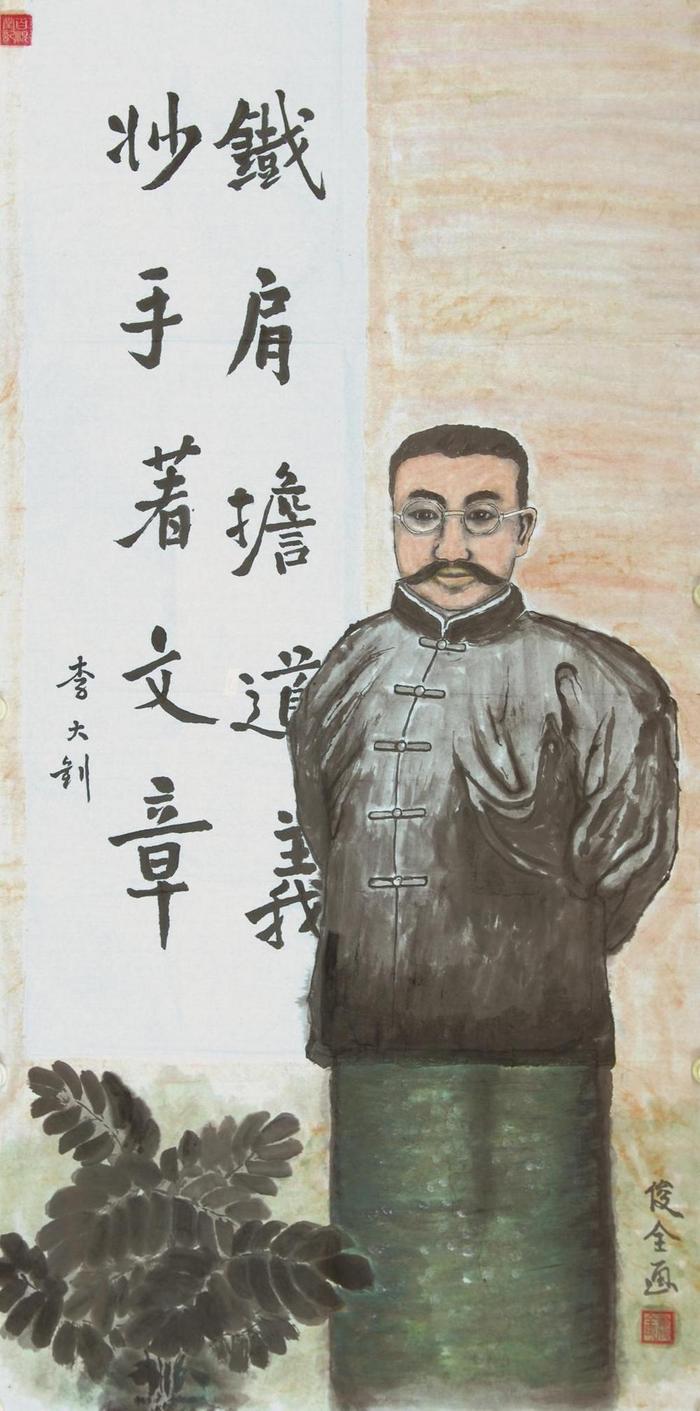 鐵肩擔道義
妙手著文章
李大釗
俊全画